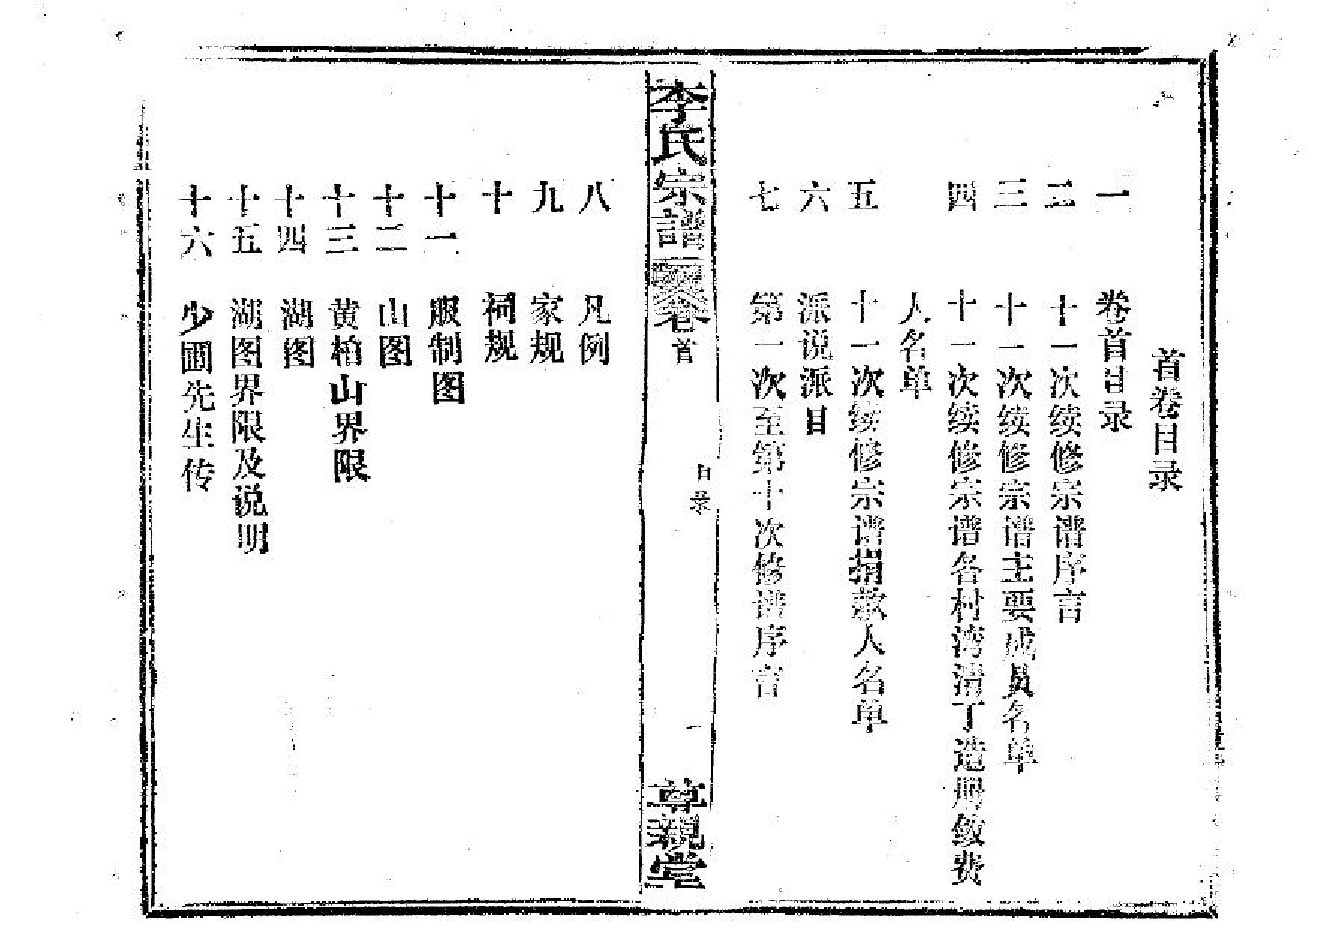 首卷目录
一 卷首目录
二 十一次续修宗谱序言
三 十一次续修宗谱主要成员名单
四 十一次续修宗谱各村湾清丁造册敛费
人名单
五 十一次续修宗谱捐款人名单
六 派说派目
七 第一次至第十次修谱序言
李氏宗譜 卷首 目录 一 尊親堂
八 凡例
九 家规
十 祠规
十一 服制图
十二 山图
十三 黄柏山界限
十四 湖图
十五 湖图界限及说明
十六 少圃先生传